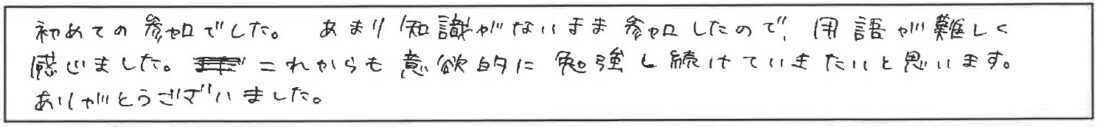 初めての参加でした。あまり知識がないまま参加したので、用語が難しく
感じました。これからも意欲的に勉強し続けていきたいと思います。
ありがとうございました。